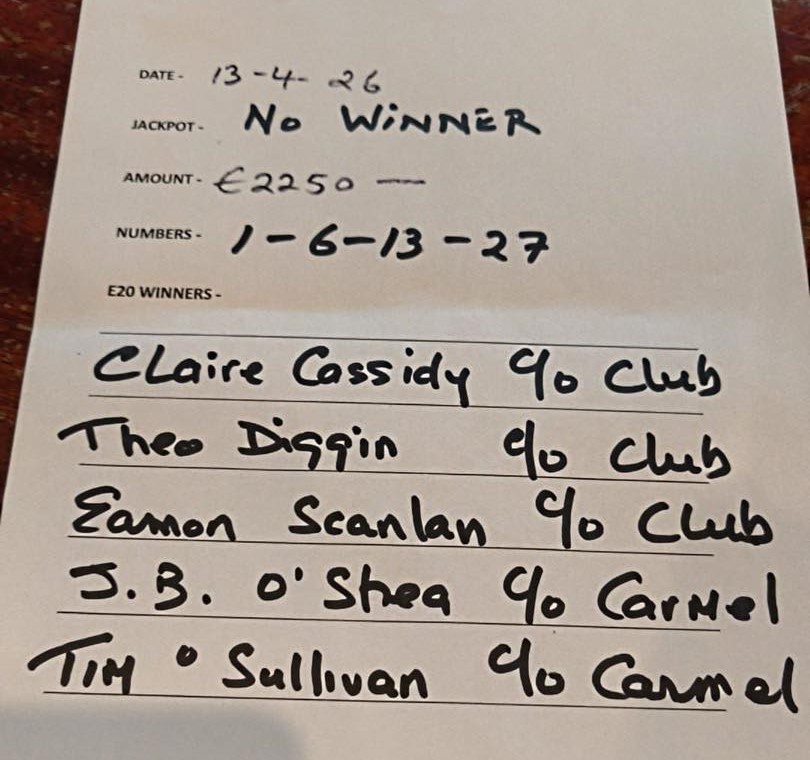 DATE - 13-4-26
JACKPOT - No WINNER
AMOUNT - €2250 —
NUMBERS - 1-6-13-27
E20 WINNERS -
Claire Cassidy c/o Club
Theo Diggin c/o Club
Eamon Scanlan c/o Club
J.B. O'Shea c/o Carmel
Tim O'Sullivan c/o Carmel